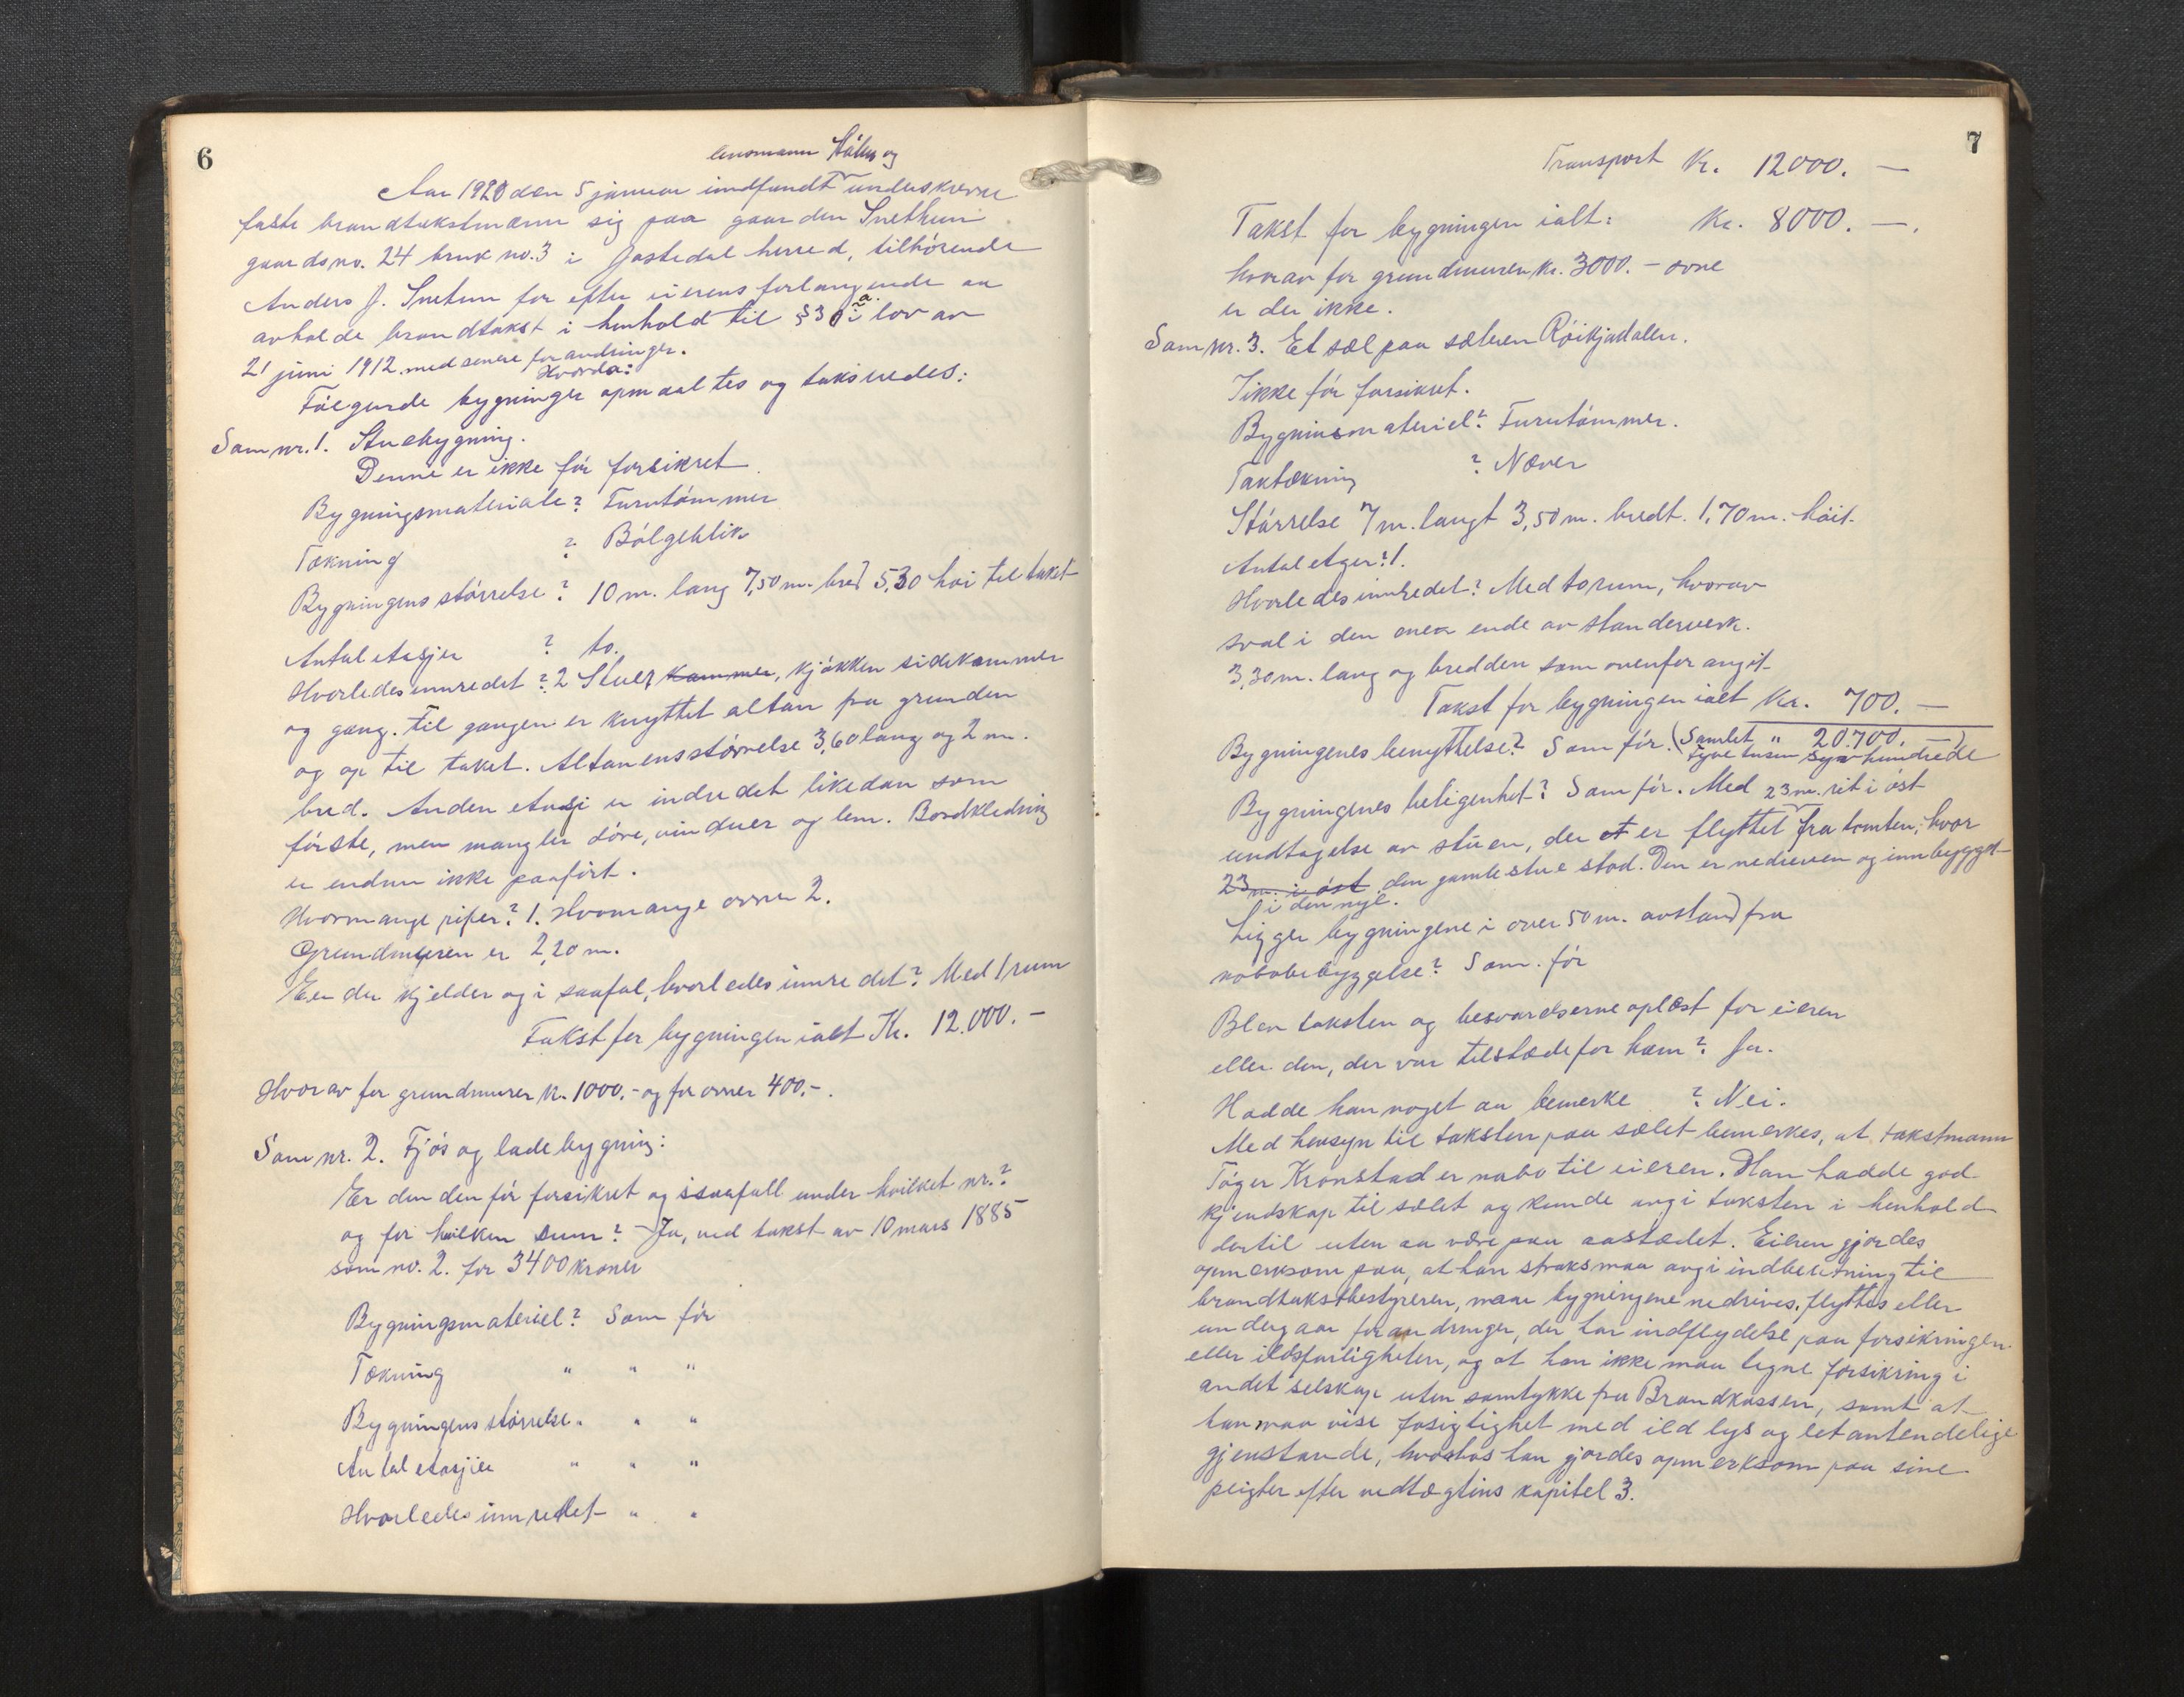 6
lensmann Håler og
Aar 1920 den 5 januar indfandt underskrevne
faste brandtakstmænn sig paa gaarden Snethun
gaardsno. 24 bruk no. 3 i Jostedal herred, tilhørende
Anders J. Snetun for efter eierens forlangende aa
avholde brandtakst i henhold til § 30 a i lov av
21 juni 1912 med senere forandringer.
Hvorda:
Følgende bygninger opmaaltes og takseredes:
Som nr. 1. Stuebygning.
Denne er ikke før forsikret.
Bygningsmateriale? Furutømmer
Tækning ? Bølgeblik
Bygningens størrelse? 10 m. lang 7,50 m. bred 5,30 høi til taket
Antal etasjer ? to.
Hvorledes innredet? 2 Stuer, kammer, kjøkken sidekammer
og gang. Til gangen er knyttet altan fra grunden
og op til taket. Altanens størrelse 3,60 lang og 2 m.
bred. Anden etasje er indredet likedan som
første, men mangler døre, vinduer og lem. Bordkledning
er endnu ikke paaført.
Hvormange piper? 1. Hvormange ovner 2.
Grundmuren er 2,20 m.
Er der kjelder og i saafal, hvorledes innredet? Med 1 rum
Takst for bygningen ialt Kr. 12.000.-
Hvorav for grundmurer kr. 1000.- og for ovner 400.-.
Som nr. 2. Fjøs og ladebygning:
Er den den før forsikret og isaafall under hvilket nr.?
og for hvilken sum? Ja, ved takst av 10 mars 1885
som no. 2. for 3400 kroner
Bygningsmateriel? Som før
Tækning " " "
Bygningens størrelse. " "
Antal etasjer " " "
Hvorledes innredet " "
7
Transport Kr. 12000. —
Takst for bygningen ialt: Kr. 8000. —.
hvorav for grundmuren kr. 3000.- ovne
er der ikke.
Som nr. 3. Et sæl paa sæteren Røikjadalen.
Ikke før forsikret.
Bygninsmateriel? Furutømmer.
Taktækning ? Næver
Størrelse 7 m. langt 3,50 m. bredt. 1,70 m. høit.
Antal etger? 1.
Hvorledes innredet? Med to rum, hvorav
sval i den ene ende av standerverk.
3,30 m. lang og bredden som ovenfor angit
Takst for bygningen ialt Kr. 700. —
Bygningenes benyttelse? Som før. (Samlet " 20700. —)
tyve tusen syv hundrede
Bygningenes beligenhet? Som før. Med 23 m. ret i øst
undtagelse av stuen, der er flyttet fra tomten, hvor
23 m. i øst den gamle stue stod. Den er nedreven og innbygget
i den nye.
Ligger bygningene i over 50 m. avstand fra
nabobebyggelse? Som før
Blev taksten og besvarelserne oplæst for eieren
eller den, der var tilstæde for ham? Ja.
Hadde han noget aa bemerke ? Nei.
Med hensyn til taksten paa sælet bemerkes, at takstmann
Tøger Kronstad er nabo til eieren. Han hadde god
kjendskap til sælet og kunde angi taksten i henhold
dertil uten aa være paa aastædet. Eieren gjordes
opmerksom paa, at han straks maa angi indberetning til
brandtakstbestyreren, naar bygningene nedrives, flyttes eller
undergaar forandringer, der har indflydelse paa forsikringen
eller ildsfarligheten, og at han ikke maa tegne forsikring i
andet selskap uten samtykke fra Brandkassen, samt at
han maa vise fosigtighet med ild lys og let antendelige
gjenstande, hvorhos han gjordes opmerksom paa sine
pligter efter vedtægtens kapitel 3.